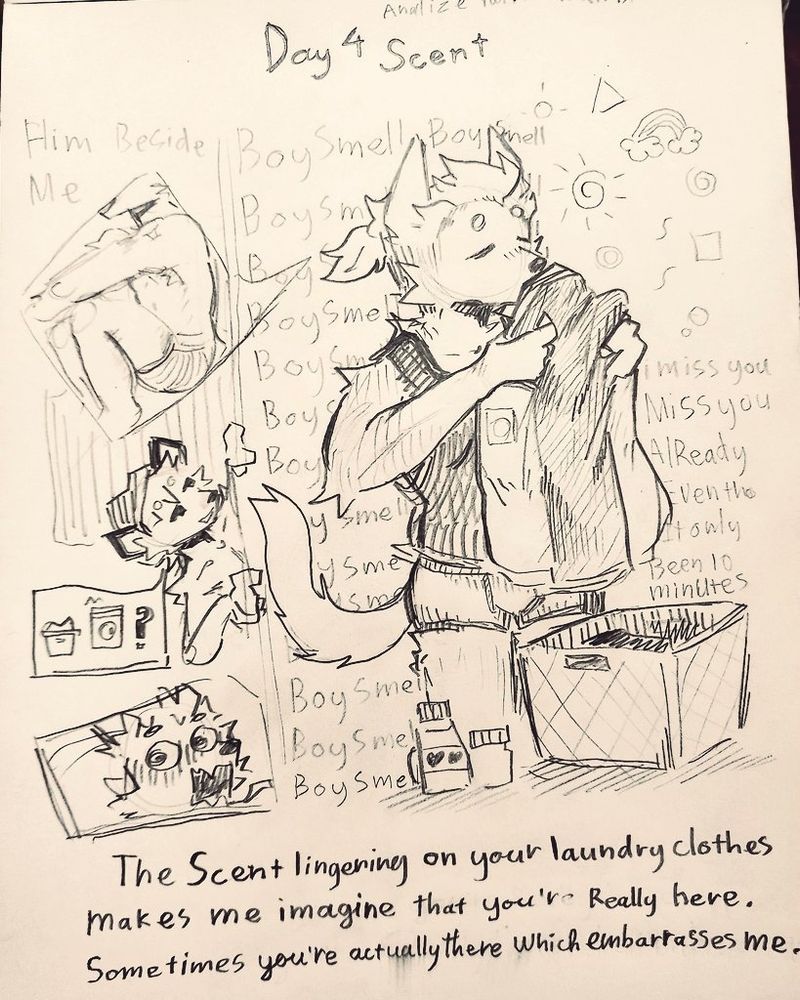 Analize
Day 4 Scent
Him Beside
Me
Boy Smell Boy Smell
Boy Sm
Boy
Boy Sme
Boy
Boy S
Boy
y Smell
y Sme
sm
Boy Smel
Boy Smel
Boy Sme
i miss you
Miss you
AlReady
Eventho
It only
Been 10
minutes
?
The Scent lingering on your laundry clothes
makes me imagine that you're Really here.
Sometimes you're actually there which embarrasses me.